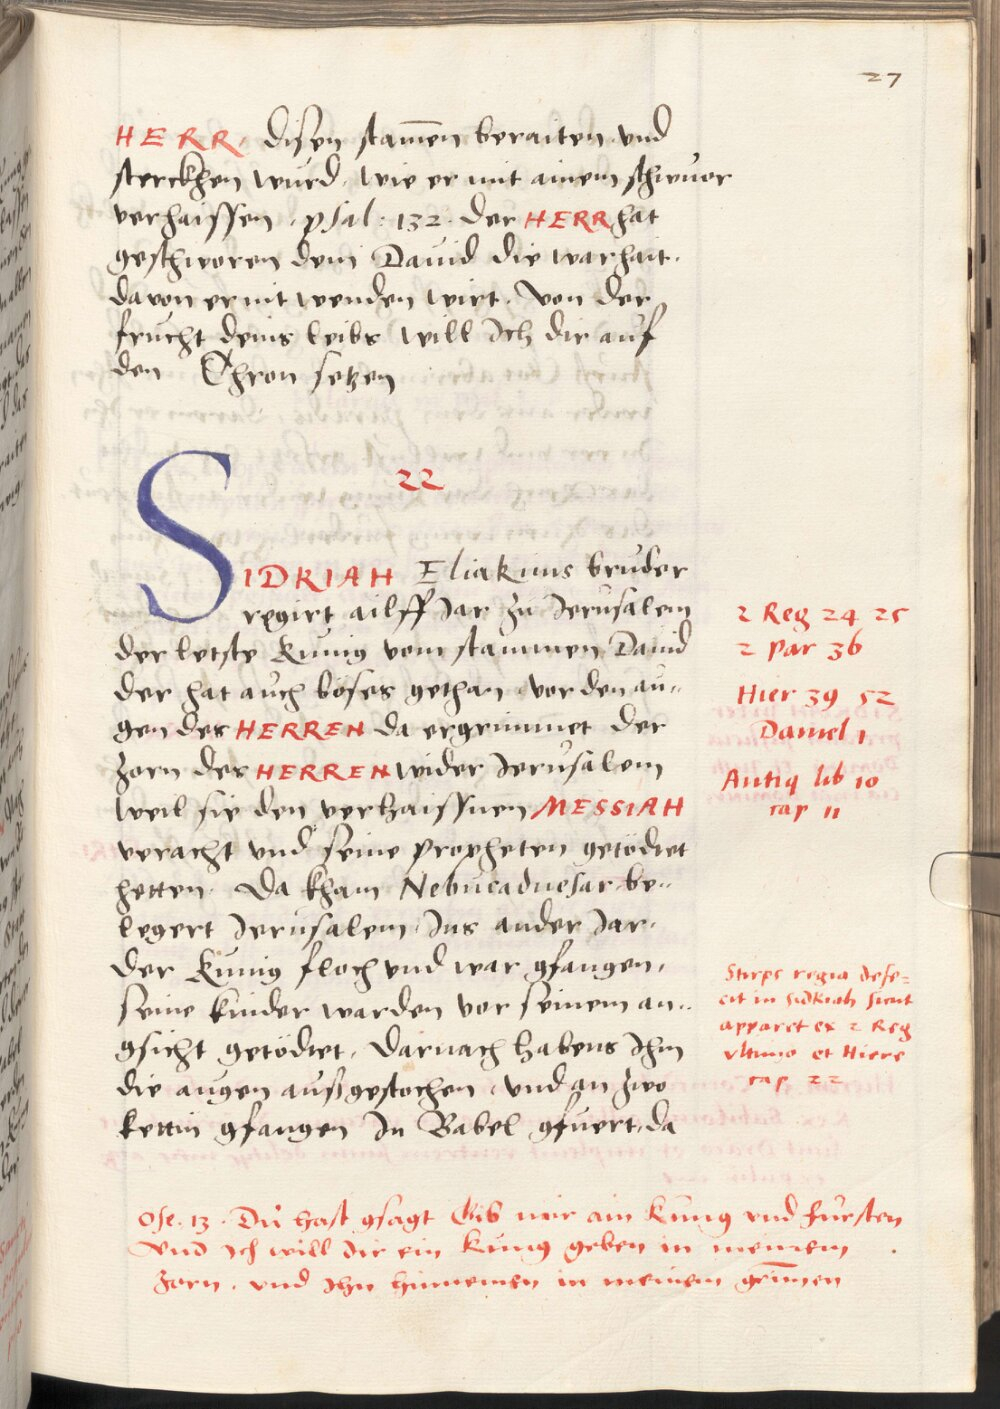 27
HERR. disen stam̄en beraiten vnd
sterckhen wurd. wie er mit ainem schwuor
verhaissen. psal: 132. der HERR hat
geschworen dem Dauid die warhait.
davon er nit wenden wirt. Von der
frucht deins leibs will Ich dir auf
den Thron setzen
22
SIDKIAH Eliakims bruder
regirt ailff Jar zu Jerusalem
der letste Kunig vom stammen Dauid
der hat auch böses gethan vor den au„
gen des HERREN da ergrimmet der
Zorn des HERREN wider Jerusalem
weil sie den verhaissnen MESSIAH
veracht vnd seine propheten getödtet
hetten. Da kham Nebucadnesar be„
legert Jerusalem Ins ander Jar.
der Kunig floch vnd war gfangen.
seine kinder warden vor seinem an„
gsicht getödtet. Darnach habens Ihm
die augen außgestochen vnd an zwo
kettin gfangen In Babel gfuert. da
2 Reg 24 25
2 par 36
Hier 39 52
Daniel 1
Antiq lib 10
cap 11
Stirps regia defe=
cit in Sidkiah sicut
apparet ex 2 Reg
vltimo et Hiere
cap 22
Ose. 13. Du hast gsagt Gib mir ain Kunig vnd fursten
Vnd Ich will dir ein Kunig geben in meinem
Zorn. vnd Ihn hinnemen in meinem grim̄en